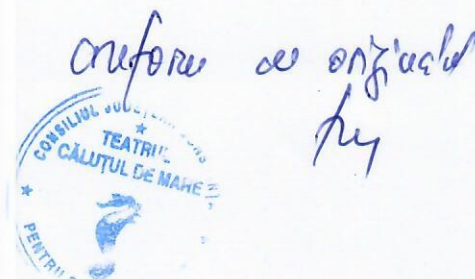 conform cu originalul
CONSILIUL JUDEȚEAN CONS
TEATRUL
CĂLUȚUL DE MARE
PENTRU